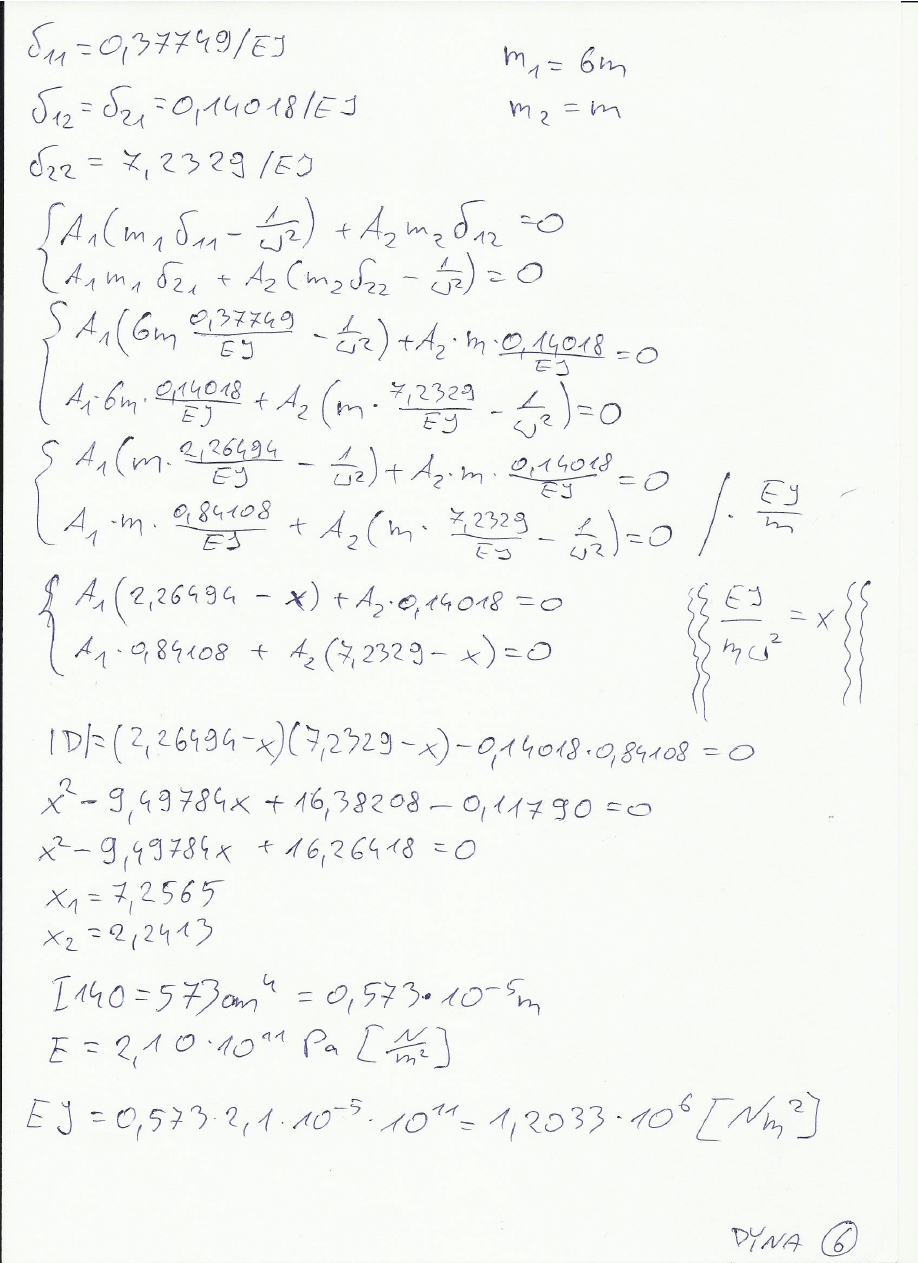 δ₁₁ = 0,37749/EJ
m₁ = 6m
δ₁₂ = δ₂₁ = 0,14018/EJ
m₂ = m
δ₂₂ = 7,2329/EJ
{ A₁(m₁δ₁₁ - 1/ω²) + A₂m₂δ₁₂ = 0
A₁m₁δ₂₁ + A₂(m₂δ₂₂ - 1/ω²) = 0
{ A₁(6m 0,37749/EJ - 1/ω²) + A₂·m·0,14018/EJ = 0
A₁·6m·0,14018/EJ + A₂(m·7,2329/EJ - 1/ω²) = 0
{ A₁(m·2,26494/EJ - 1/ω²) + A₂·m·0,14018/EJ = 0
A₁·m·0,84108/EJ + A₂(m·7,2329/EJ - 1/ω²) = 0 /· EJ/m
{ A₁(2,26494 - x) + A₂·0,14018 = 0
A₁·0,84108 + A₂(7,2329 - x) = 0
EJ/mω² = x
|D| = (2,26494-x)(7,2329-x) - 0,14018·0,84108 = 0
x² - 9,49784x + 16,38208 - 0,11790 = 0
x² - 9,49784x + 16,26418 = 0
x₁ = 7,2565
x₂ = 2,2413
I140 = 573cm⁴ = 0,573·10⁻⁵m
E = 2,10·10¹¹ Pa [N/m²]
EJ = 0,573·2,1·10⁻⁵·10¹¹ = 1,2033·10⁶ [Nm²]
DYNA 6